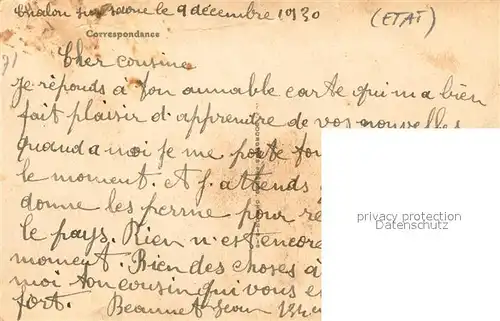 Chalon sur Saone le 9 décembre 1930
(ETAT)
Correspondance
Cher cousin
Je réponds a ton aimable carte qui m a bien
fait plaisir d apprendre de vos nouvelles
quand a moi je me porte
le moment. et j. attends
donne les perme pour
le pays. Rien n'est encore
moment. Bien des choses à
moi ton cousin qui vous
fort. Jean
privacy protection
Datenschutz